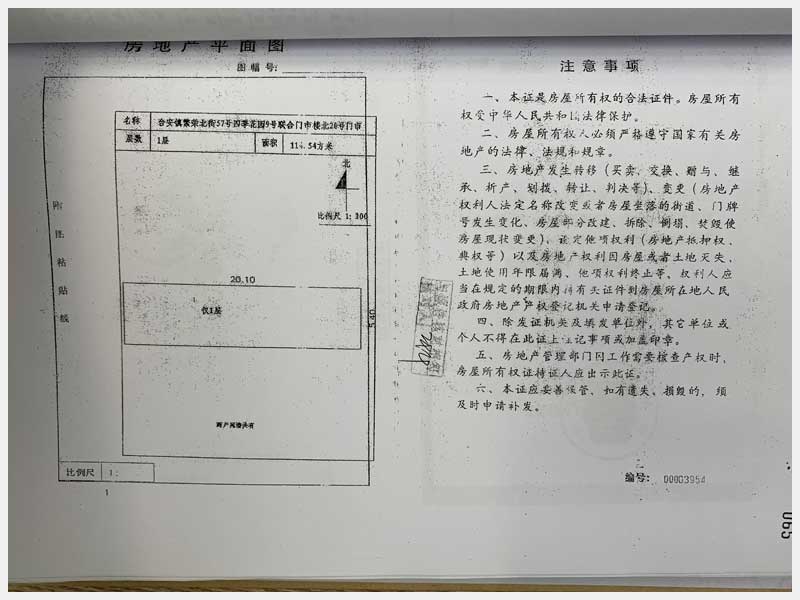 房地产平面图
图幅号:
名称 台安镇繁荣北街57号四季花园9号联合门市楼北20号门市
层数 1层 面积 .54方米
北
比例尺 1:300
附图粘贴线
20.10
仅1层
5.40
两户间墙共有
比例尺 1:
1
注意事项
一、本证是房屋所有权的合法证件。房屋所有
权受中华人民共和国法律保护。
二、房屋所有权人必须严格遵守国家有关房
地产的法律、法规和规章。
三、房地产发生转移(买卖、交换、赠与、继
承、析产、划拨、转让、判决等)、变更(房地产
权利人法定名称改变或者房屋坐落的街道、门牌
号发生变化、房屋部分改建、拆除、倒塌、焚毁使
房屋现状变更)、设定他项权利(房地产抵押权、
典权等)以及房地产权利因房屋或者土地灭失、
土地使用年限届满、他项权利终止等,权利人应
当在规定的期限内持有关证件到房屋所在地人民
政府房地产产权登记机关申请登记。
四、除发证机关及填发单位外,其它单位或
个人不得在此证上注记事项或加盖印章。
五、房地产管理部门因工作需要核查产权时,
房屋所有权证持证人应出示此证。
六、本证应妥善保管、如有遗失、损毁的,须
及时申请补发。
编号: 00003954
065